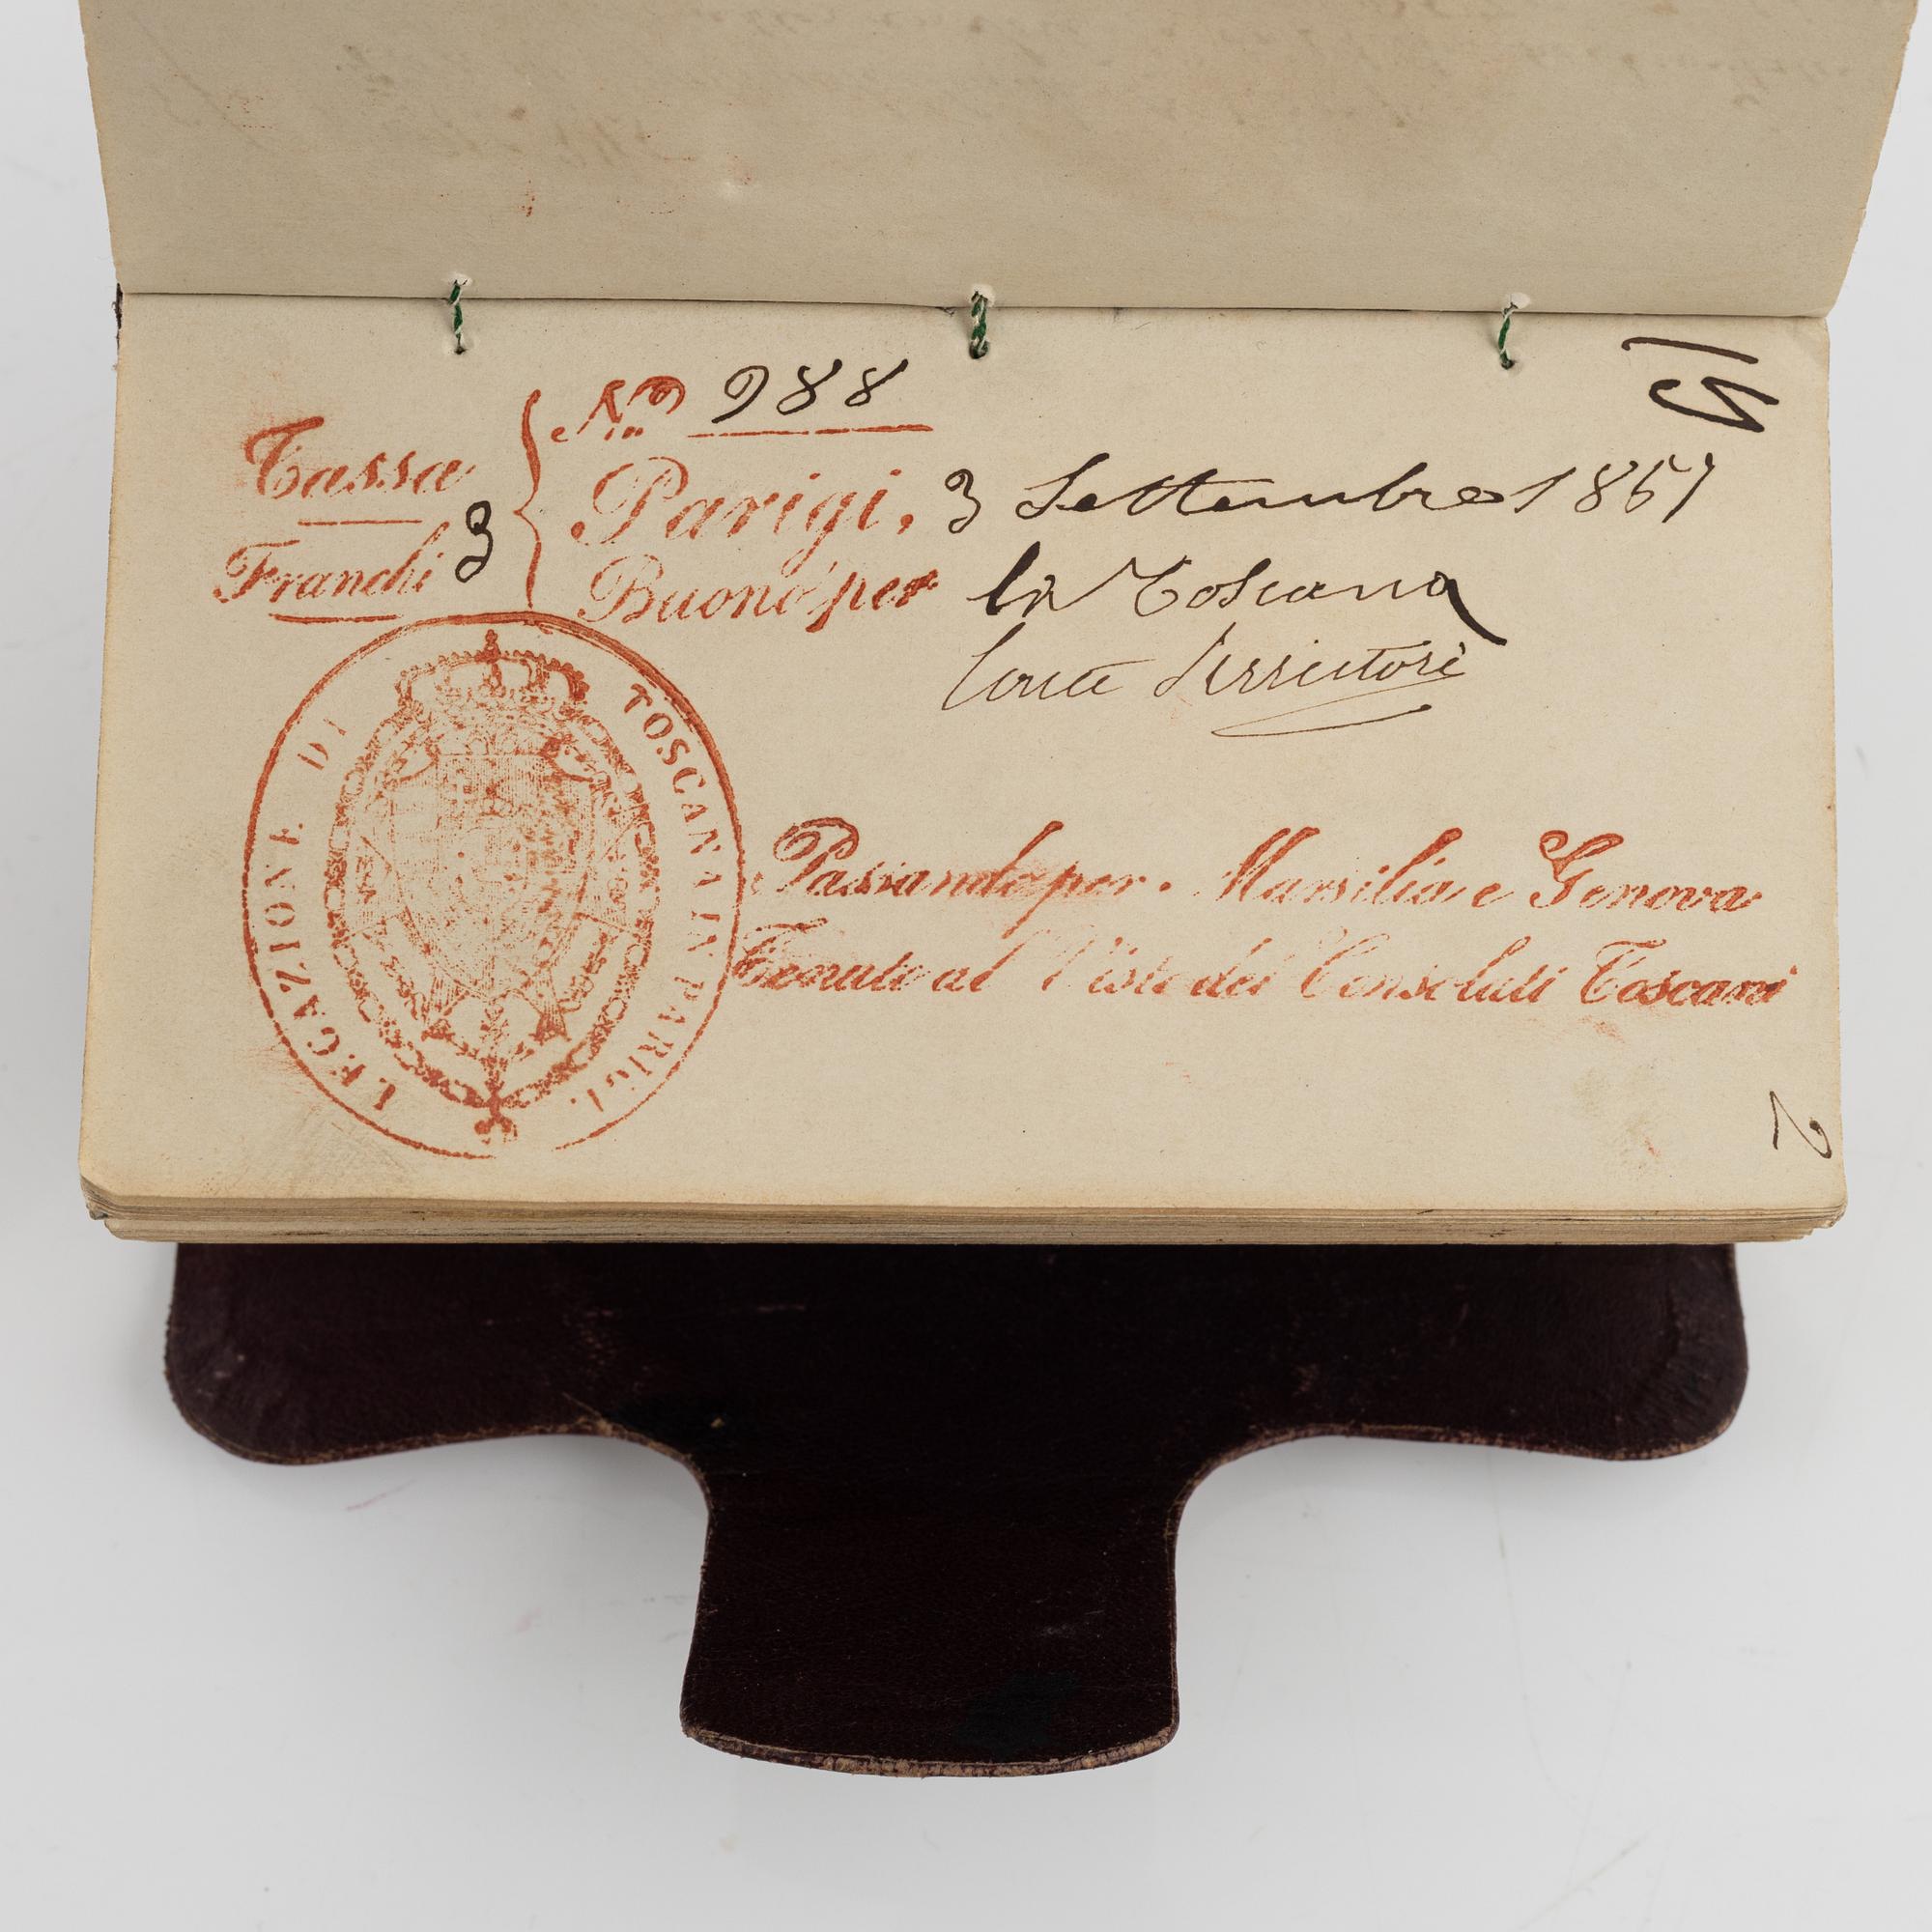 Nro 988
Tassa
Franchi 3
Parigi, 3 Settembre 1857
Buono per la Toscana
Conte
LEGAZIONE DI TOSCANA IN PARIGI.
Passando per Marsilia e Genova
Tenuto al Visto dei Consolati Toscani
15
2